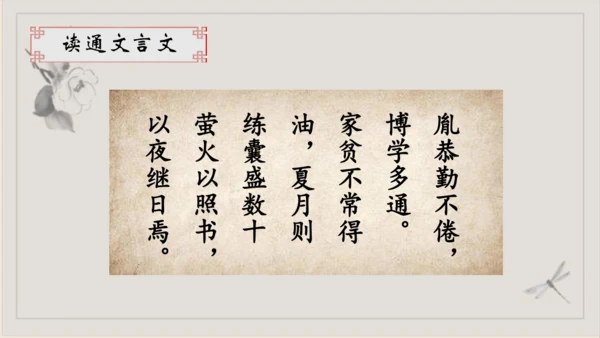 读通文言文
胤恭勤不倦，
博学多通。
家贫不常得
油，夏月则
练囊盛数十
萤火以照书，
以夜继日焉。